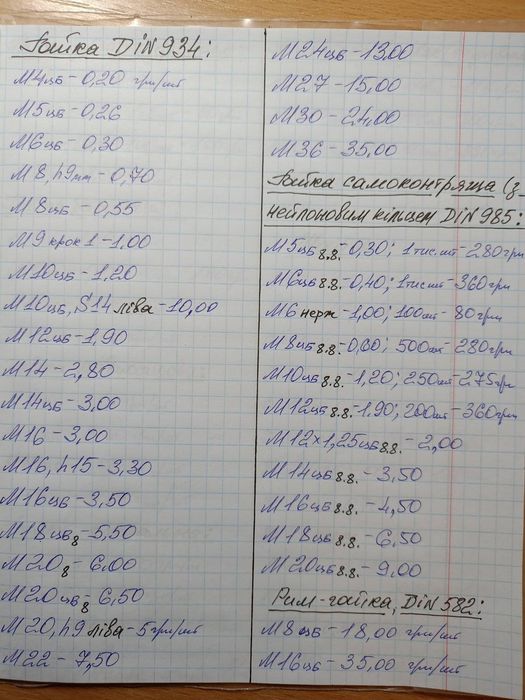 Гайка DIN 934:
М4цб - 0,20 грн/шт
М5цб - 0,26
М6цб - 0,30
М8, h9мм - 0,70
М8цб - 0,55
М9 крок 1 - 1,00
М10цб - 1,20
М10цб, S14 ліва - 10,00
М12цб - 1,90
М14 - 2,80
М14цб - 3,00
М16 - 3,00
М16, h15 - 3,30
М16цб - 3,50
М18цб 8 - 5,50
М20 8 - 6,00
М20цб 8 - 6,50
М20, h9 ліва - 5 грн/шт
М22 - 7,50
М24цб - 13,00
М27 - 15,00
М30 - 24,00
М36 - 35,00
Гайка самоконтряща (з
нейлоновим кільцем DIN 985:
М5цб 8.8. - 0,30; 1 тис.шт - 280грн
М6цб 8.8. - 0,40; 1 тис.шт - 360грн
М6 нерж - 1,00; 100шт - 80грн
М8цб 8.8. - 0,60; 500шт - 280грн
М10цб 8.8. - 1,20; 250шт - 275грн
М12цб 8.8. - 1.90; 200шт - 360грн
М12х1,25цб 8.8. - 2,00
М14цб 8.8. - 3,50
М16цб 8.8. - 4,50
М18цб 8.8. - 6,50
М20цб 8.8. - 9,00
Рим-гайка, DIN 582:
М8цб - 18,00 грн/шт
М16цб - 35,00 грн/шт